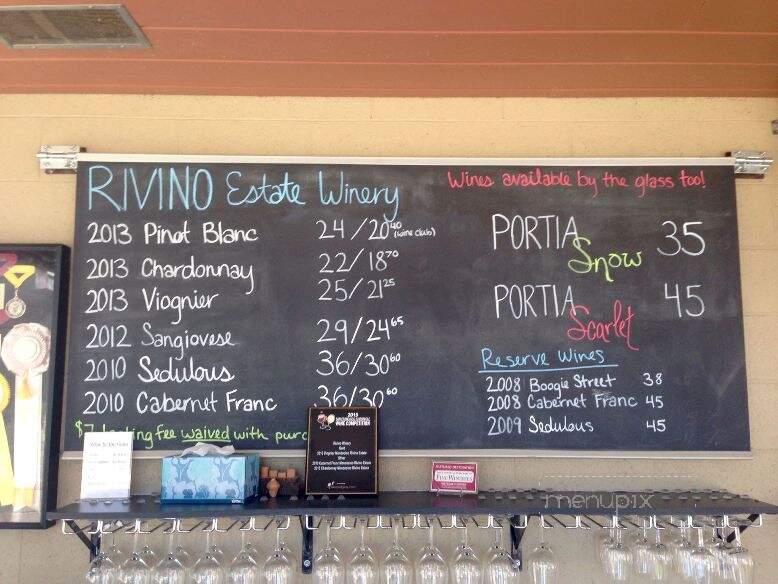 RIVINO Estate Winery
2013 Pinot Blanc 24/20⁴⁰ (wine club)
2013 Chardonnay 22/18⁷⁰
2013 Viognier 25/21²⁵
2012 Sangiovese 29/24⁶⁵
2010 Sedulous 36/30⁶⁰
2010 Cabernet Franc 36/30⁶⁰
fee waived with
Wines available by the glass too!
PORTIA Snow 35
PORTIA Scarlet 45
Reserve Wines
2008 Boogie Street 38
2008 Cabernet Franc 45
2009 Sedulous 45
2015
WINE COMPETITION
menupix